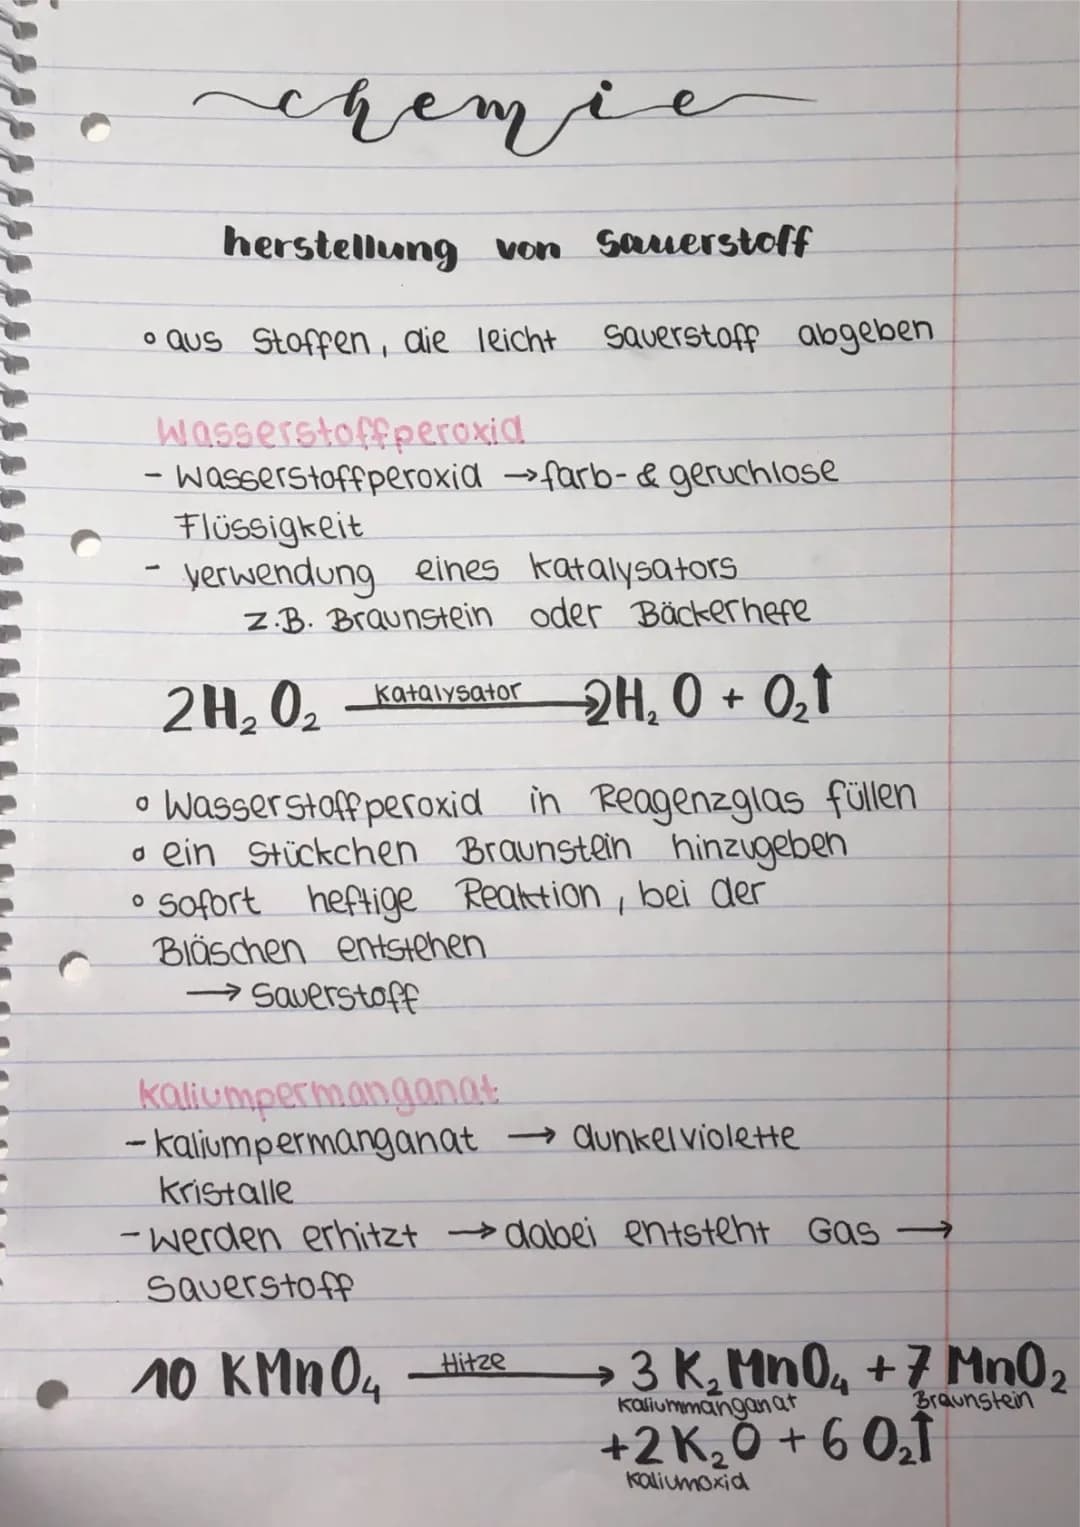 chemie
herstellung von Sauerstoff
° aus Stoffen, die leicht Sauerstoff abgeben
Wasserstoffperoxid
- Wasserstoffperoxid → farb- & geruchlose
Flüssigkeit
- Verwendung eines Katalysators
z.B. Braunstein oder Bäckerhefe
2H₂O₂ —Katalysator→ 2H₂O + O₂↑
° Wasserstoffperoxid in Reagenzglas füllen
° ein Stückchen Braunstein hinzugeben
° sofort heftige Reaktion, bei der
Bläschen entstehen
→ Sauerstoff
Kaliumpermanganat
- Kaliumpermanganat → dunkelviolette
Kristalle
- werden erhitzt → dabei entsteht Gas →
Sauerstoff
10 KMnO₄ —Hitze→ 3 K₂MnO₄ + 7 MnO₂
Kaliummanganat Braunstein
+2K₂O + 6 O₂↑
Kaliumoxid